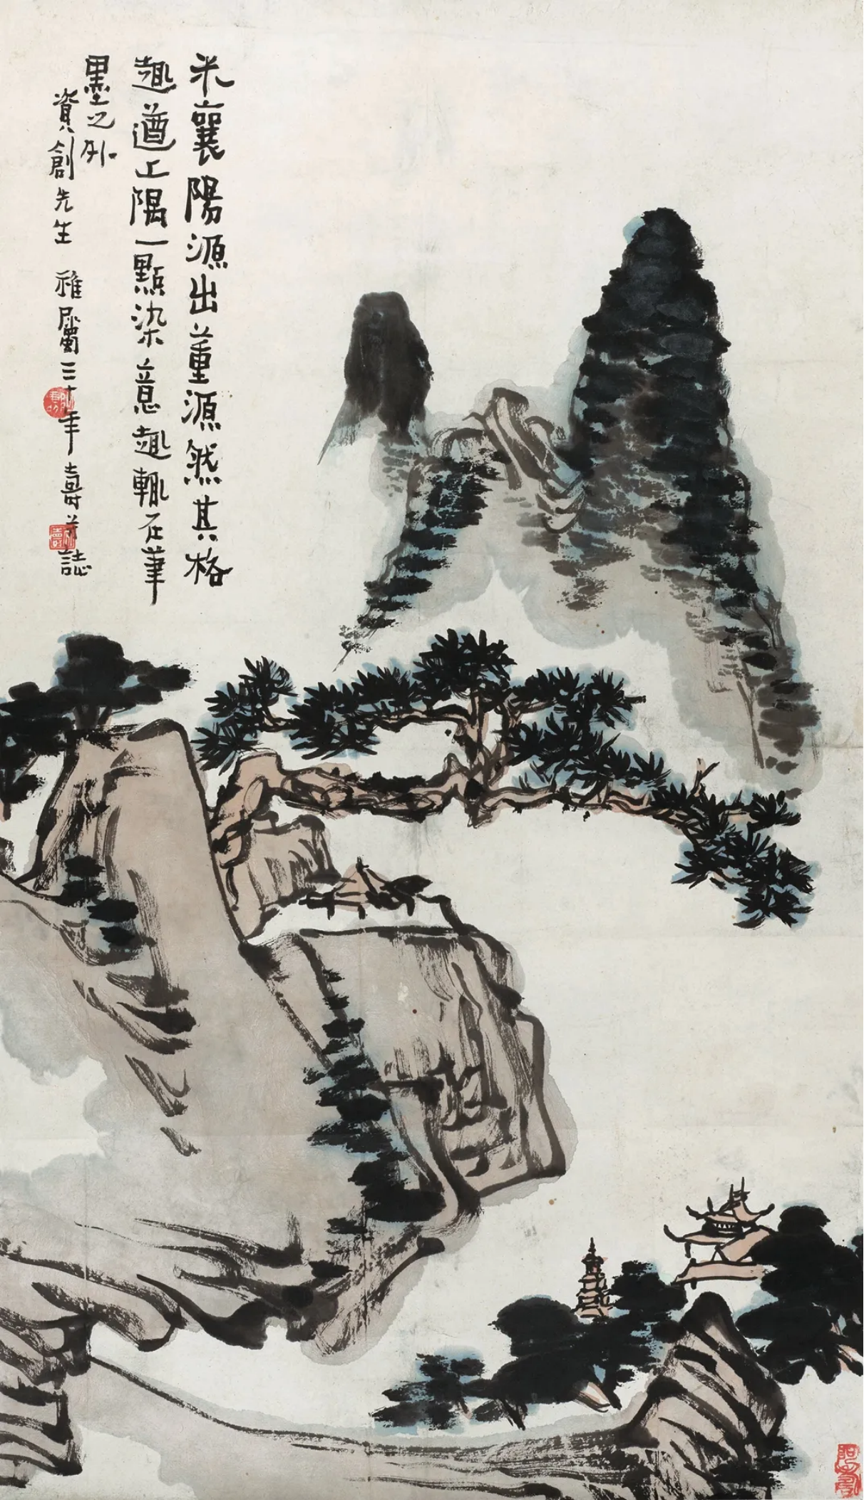 米襄陽源出董源然其格
趣遒上隅一點染意趣輒在筆
墨之外
資創先生 雅屬三十年壽者誌
阿壽